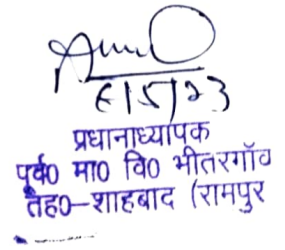 6/5/23
प्रधानाध्यापक
पूर्व0 मा0 वि0 भीतरगाँव
तह0-शाहबाद (रामपुर